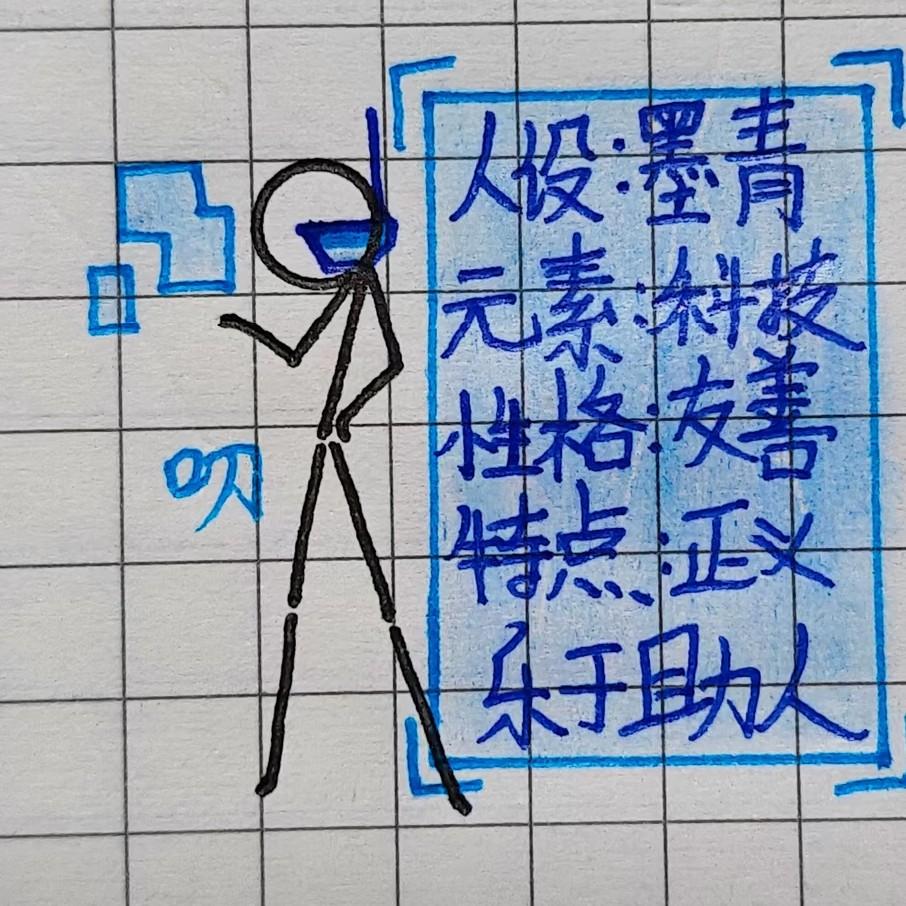 人设:墨青
元素:科技
性格:友善
特点:正义
乐于助人